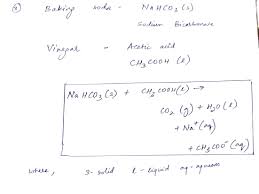 ③ Baking soda - NaHCO₃(s)
Sodium Bicarbonate
Vinegar - Acetic acid
CH₃COOH (l)
NaHCO₃(s) + CH₃COOH(l) →
CO₂(g) + H₂O(l)
+ Na⁺(aq)
+ CH₃COO⁻(aq)
where, s-solid l-liquid aq-aqueous